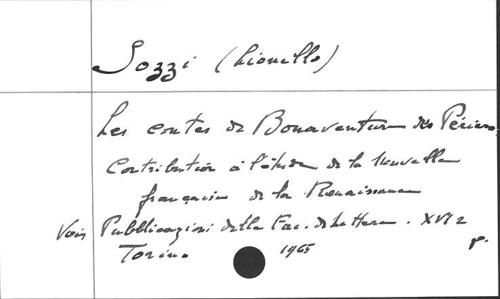 Sozzi (Lionello)
Les contes de Bonaventure des Périers.
Contribution à l'étude de la nouvelle
française de la Renaissance
Voir Pubblicazioni della Fac. di Lettere. XVI 2
Torino 1965 p.